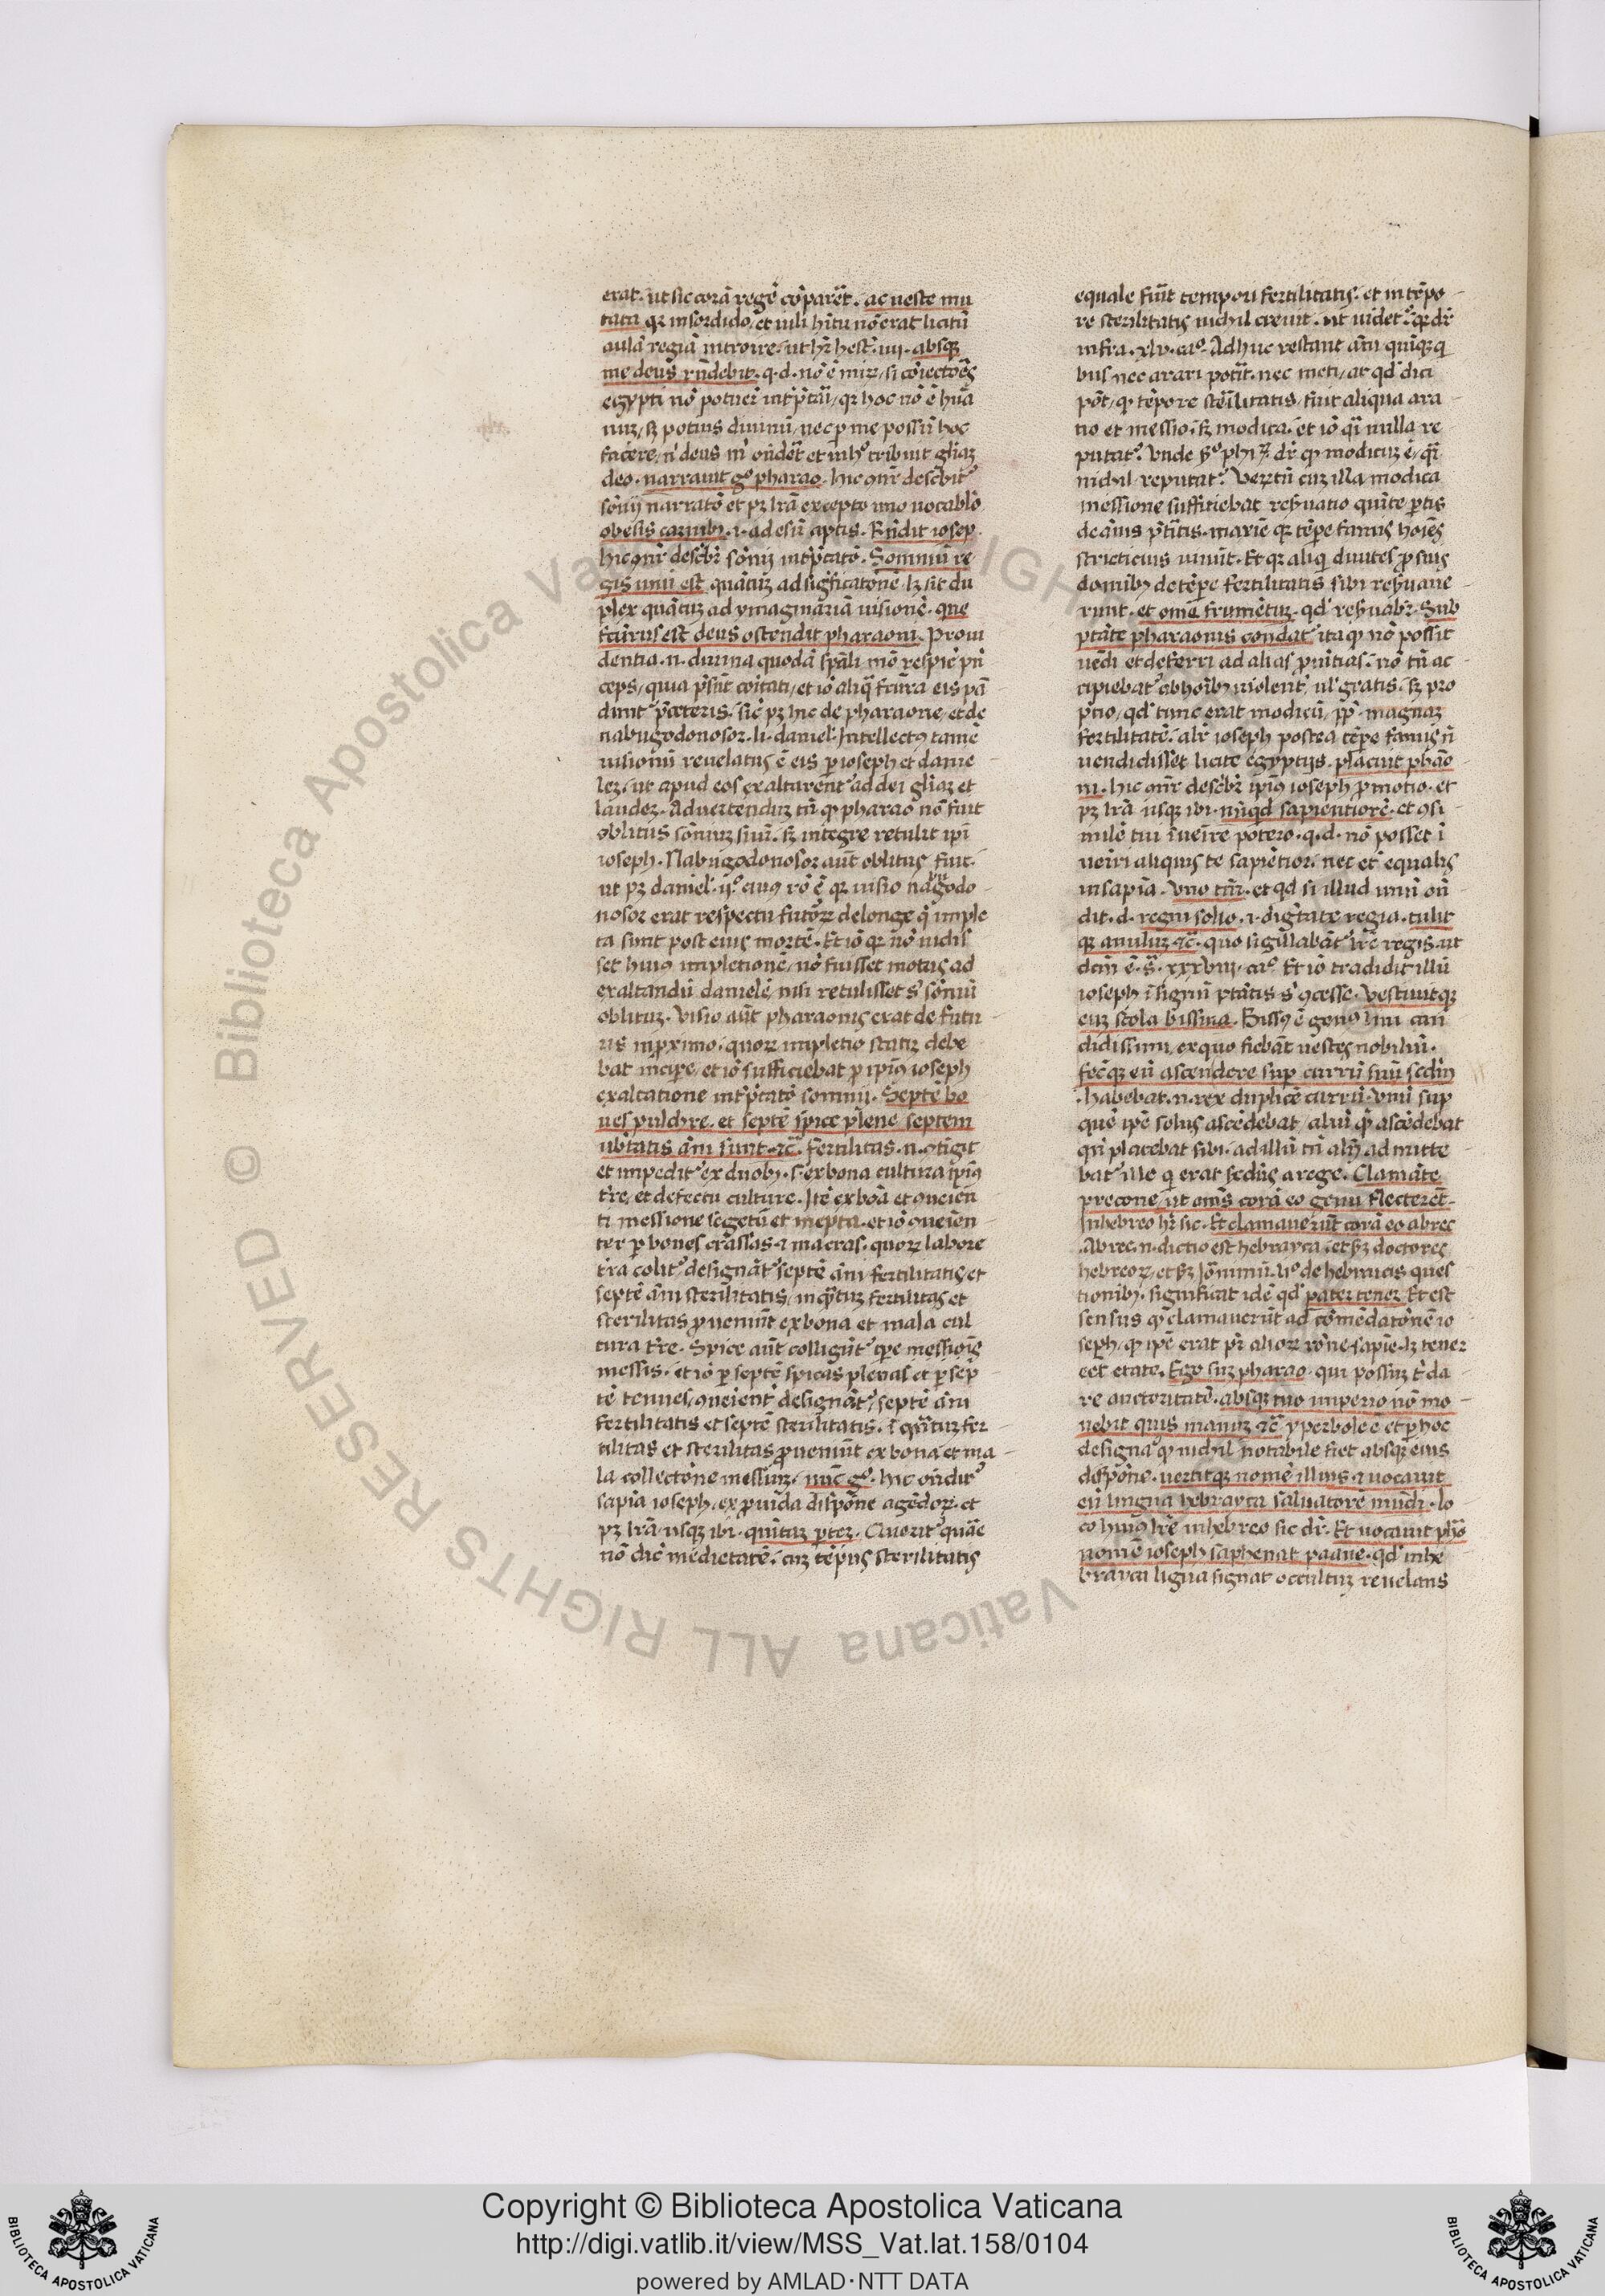 erat. ut sic corā regē cōparēt. ac ueste mu
tata qꝛ in sordido et uili hītu nō erat licitū
aulā regiā introire. ut hr̄ hest. iiii. absqꝫ
me deus rn̄debit. q. d. nō ē miꝝ si cōiectoēs
egypti nō potuer̄ int̄p̄tari qꝛ hoc nō ē huā
nuꝫ sꝫ potius diuinū nec ꝑ me possū hoc
facere ni deus m ondēt et in hͦ tribuit gliaꝫ
deo. narrauit gͦ pharao. hic ꝯnr̄ describit᷑
sōnii narratō et pꝫ lrā excepto uno uocablō
obesis carnibꝫ. i. ad esū aptis. Rn̄dit iosep
hic ꝯnr̄ descbr̄ sōnii int̄p̄tatō. Somniū re
gis unū est quātuꝫ ad sigficatonē lꝫ sit du
plex quātuꝫ ad ymaginariā uisionē. que
facturus est deus ostendit pharaoni. Proui
dentia. n. diuina quodā spāli mō respic̄ pn̄
ceps, quia p̄sūt cōitati, et iō aliq̄ fctūra eis pā
dunt᷑ p̄ceteris. sic̄ pꝫ hic de pharaone, et de
nabugodonosor. li. daniel. Intellectꝰ tamē
uisionū reuelatus ē eis ꝑ ioseph et danie
leꝫ, ut apud eos exaltarent᷑ ad dei gliaꝫ et
laudeꝫ. Aduertenduꝫ tn̄ qꝫ pharao nō fuit
oblitus sōnuꝫ suū. sꝫ integre retulit ipī
ioseph. Nabugodonosor aut̄ oblitus fuit.
ut pꝫ daniel. ijͦ. cuiꝰ rō ē qꝛ uisio nabugodo
nosor erat respectu futoꝝ delonge q̄ imple
ta sunt post eius mortē. Et iō qꝛ nō uidis
set huiꝰ impletionē, nō fuisset motus ad
exaltandū danielē, nisi retulisset s sōnuū
oblituꝫ. Visio aūt pharaonis erat de futu
ris in proximo. quoꝝ impletio statiꝫ debe
bat incipe, et iō sufficiebat pro ipiꝰ ioseph
exaltatione int̄p̄tatō somnii. Septē bo
ues pulchre. et septē spice plene septem
ubtatis āni sunt ⁊c̄. fertilitas. n. ꝯtigit
et impedit᷑ ex duobꝫ. s. ex bona cultura ipiꝰ
t̄re, et defectu culture. Itē ex boā et ꝯueien
ti messione segetū et inepta. et iō ꝯueien
ter ꝑ boues crassas ⁊ macras. quoꝝ labore
t̄ra colit᷑ designāt᷑ septē āni fertilitatis et
septē āni sterilitatis, inq̄tuꝫ fertilitas et
sterilitas proueniūt ex bona et mala cul
tura t̄re. Spice aūt colligūt᷑ tp̄e messiois
messis. et iō ꝑ septē spicas plenas et ꝑ sep
tē tenues, ꝯueient᷑ designāt᷑ septē āni
fertilitatis et septē sterilitatis. ī q̄ntuꝫ fer
tilitas et sterilitas proueniūt ex bona et ma
la collectōne messiuꝫ. nūc gͦ. hic ondit᷑
sapia ioseph, ex prouida dispōne agēdoꝝ. et
pꝫ lrā. usqꝫ ibi. quītaꝫ pteꝫ. Querit᷑ quāe
nō dic̄ medietatē. cuꝫ tēpus sterilitatis
equale fuit tempori fertilitatis. et in tēpo
re sterilitatis nichil creuit. ut uidet᷑. qꝛ dr̄
infra. xlv. caͦ. Adhuc restant āni quīqꝫ q
bus nec arari potit. nec meti, at qd̓ dici
pōt, qꝫ tēpore sterilitatis, fiut aliqua ara
tio et messio. sꝫ modica. et iō qͣi nulla re
putat᷑. Vnde sͦ phiꝝ dr̄ qꝫ modicuꝫ ē, qͣi
nichil reputat᷑. Veꝝtū cuꝫ illa modica
messione sufficiebat reseruatio quīte ptis
de ānis p̄titis. maxīe qꝛ tēpe famis hoīes
stricticius uiuūt. Et qꝛ aliq diuites pro suis
domibꝫ de tēpe fertilitatis sibi reseruaue
runt. et omē frumētuꝫ. qd̓ reseruabr̄. Sub
ptāte pharaonis condat᷑ ita qꝫ nō possit
uēdi et deferri ad alias prouitias. nō tn̄ ac
cipiebat᷑ ab hoībꝫ uiolent᷑, ul̓ gratis. sꝫ pro
p̄tio, qd̓ tunc erat modicū, pp̄ magnaꝫ
fertilitatē. alr̄ ioseph postea tēpe famis n̄
uendidisset licite egyptijs. placuit phāo
ni. hic ꝯnr̄ descbr̄ ipiꝰ ioseph promotio. et
pꝫ lrā usqꝫ ibi. nūqd sapientiorē. et ꝯsi
milē tui īueire potero. q. d. nō posset ī
ueiri aliquis te sapiētior. nec et̄ equalis
in sapia. Vno tm̄. et qd si illud unū on̄
dit. d. regni solio. i. digtate regia. tulit
qꝫ anuluꝫ ⁊c̄. quo sigillabāt᷑ lr̄e regis. ut
dcm̄ ē. s̄. xxxviij. caͦ. Et iō tradidit illū
ioseph ī signū ptātis s ꝯcesse. Vestiuitqꝫ
euꝫ stola bissina. Bissꝰ ē genꝰ lini can
didissimi, ex quo fiebāt uestes nobiliū.
fecitqꝫ eū ascendere sup currū suū scdm̄
. habebat. n. rex duplicē currū. Vnū sup
quē ipē solus ascēdebat, aliū q̄ ascēdebat
qn̄ placebat sibi. ad illū tn̄ alꝰ admitte
bat᷑ ille q erat scdus a rege. Clamāte
precone, ut oms corā eo genu flecterēt.
In hebreo hr̄ sic. Et clamauerūt corā eo abrec
Abrec. n. dictio est hebrayca. et sꝫ doctores
hebreoꝝ, et sꝫ Ieronimū. liͦ. de hebraicis. ques
tionibꝫ. significat idē qd̓ pater tener. Et est
sensus qꝫ clamauerūt ad cōmēdatōnē io
seph, qꝫ ipē erat pr̄ alioꝝ rōne sapie. lꝫ tener
eēt etate. Ego suꝫ pharao. qui possuꝫ t̄ da
re auctoritatē. absqꝫ tuo imperio nō mo
uebit quis manuꝫ ⁊c̄. yperbole ē et ꝑ hoc
designat̄ qꝫ nichil notabile fiet absqꝫ eius
dispōne. uertitqꝫ nomē illius. ⁊ uocauit
eū lingua hebrayca saluatorē mūdi. lo
co huiꝰ lr̄e in hebreo sic dr̄. Et uocauit phō
nomē ioseph saphenat paane. qd̓ in he
brayca ligua signat occultuꝫ reuelans
Copyright © Biblioteca Apostolica Vaticana
http://digi.vatlib.it/view/MSS_Vat.lat.158/0104
powered by AMLAD·NTT DATA
BIBLIOTECA APOSTOLICA VATICANA
BIBLIOTECA APOSTOLICA VATICANA
© Biblioteca Apostolica Vaticana ALL RIGHTS RESERVED